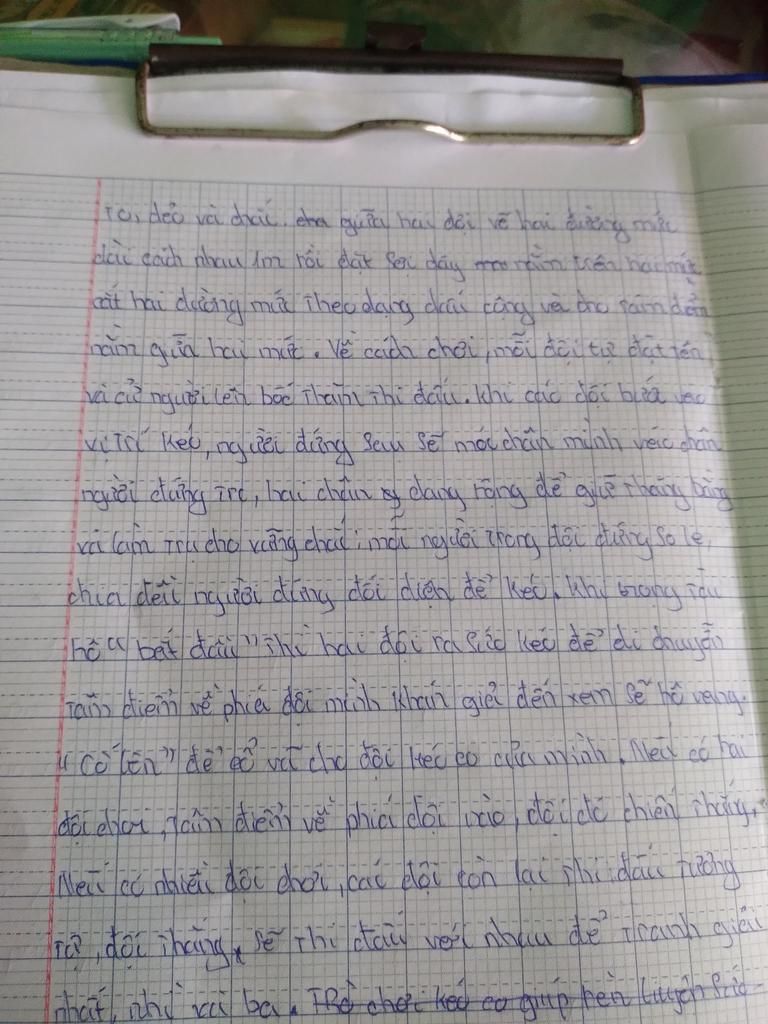 to, dẻo và chắc. giữa hai đội vẽ hai đường mức
dài cách nhau 1m rồi đặt sợi dây nằm trên hai mức
cắt hai đường mức theo dạng dấu cộng và cho tâm điểm
nằm giữa hai mức. Về cách chơi, mỗi đội tự đặt tên
và cử người lên bốc thăm thi đấu. Khi các đội bước vào
vị trí kéo, người đứng sau sẽ móc chân mình vào chân
người đứng trc, hai chân dang rộng để giữ thăng bằng
và làm trụ cho vững chắc; mỗi người trong đội đứng so le,
chia đều người đứng đối diện để kéo. Khi trọng tài
hô "bắt đầu" thì hai đội ra sức kéo để di chuyển
tâm điểm về phía đội mình khán giả đến xem sẽ hô vang.
"Cố lên" để cổ vũ cho đội kéo co của mình. Nếu có hai
đội chơi, tâm điểm về phía đội nào, đội đó chiến thắng.
Nếu có nhiều đội chơi, các đội còn lại thi đấu tương
tự, đội thắng sẽ thi đấu với nhau để tranh giải
nhất, nhì và ba. Trò chơi kéo co giúp rèn luyện sức